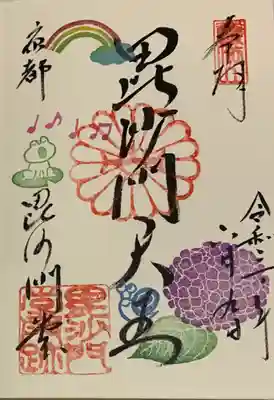 奉拝
令和三年
六月九日
毘沙門天王
京都
毘沙門堂
毘沙門
堂門跡